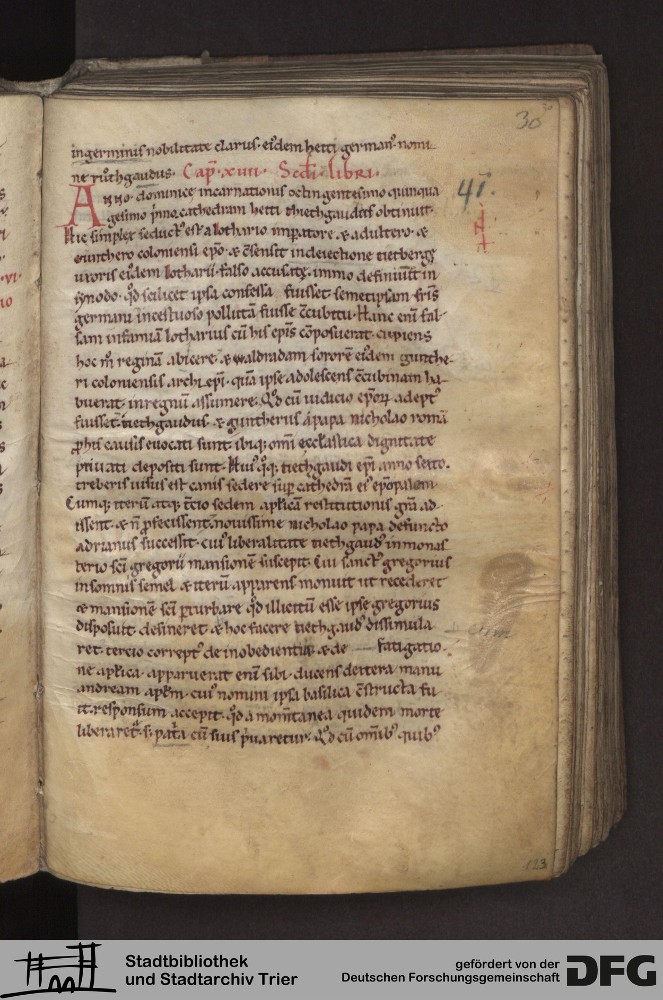 30
ingerminis nobilitate clarus. eidem hetti german⁹ nomi-
ne ruthgaudus. Cap̅. xiiii. Sc̅di. libri.
Anno dominice incarnationis octingentesimo quinqua
gesimo primo cathedram hetti thiethgaudus obtinuit.
41.
Hic simplex seduct⁹ est a lothario imp̅atore & adultero. &
gunthero coloniensi ep̅o. & c̅sensit in deiectione tietberge
uxoris eiusdem lotharii. falso accusate. immo definiuit in
synodo. qd̅ scilicet ipsa confessa fuisset. semetipsam fr̅is
germani incestuoso pollutā fuisse c̅cubitu. Hanc eni̅ fal-
sam infamiā lotharius cū his ep̅is cōposuerat. cupiens
hoc m̅ reginā abicere. & waldradam sororē eiusdem gunthe-
ri coloniensis archiep̅i. quā ipse adolescens c̅cubinam ha-
buerat. in regnū assumere. Qd̅ cū iudicio ep̅orꝝ adept⁹
fuisset. tiethgaudus & guntherus a papa nicholao romā
p̱ his causis euocati sunt. ibiq; omi̅ eccl̅astica dignitate
priuati depositi sunt. Hui⁹ q̊q; tiethgaudi ep̅i anno sexto.
treberis uisus est canis sedere sup̱ cathedrā ei⁹ ep̅opalem.
Cumq; iterū atq; t̅cio sedem ap̅licā restitutionis gr̅a ad-
issent. & n̅ p̱fecissent. nouissime nicholao papa defuncto
adrianus successit. cui⁹ liberalitate tiethgaud⁹ in monas
terio sc̅i gregorii mansionē suscepit. Cui sanct⁹ gregorius
in somnis semel & iterū apparens monuit ut recederet
& mansionē sc̅i p̱turbare qd̅ illicitū esse ipse gregorius
disposuit. desineret. & hoc facere tiethgaud⁹ dissimula
ret. tercio corrept⁹ de inobedientia. & de fatigatio-
ne ap̅lica. apparuerat eni̅ sibi. ducens dextera manu
andream ap̅lm. cui⁹ nomini ipsa basilica c̅structa fu
it. responsum accepit. qd̅ a momētanea quidem morte
liberaret̅. s; pat̅a cū suis p̱uaretur. Qd̅ cū omib⁹ quib⁹
123
Stadtbibliothek
und Stadtarchiv Trier
gefördert von der
Deutschen Forschungsgemeinschaft
DFG